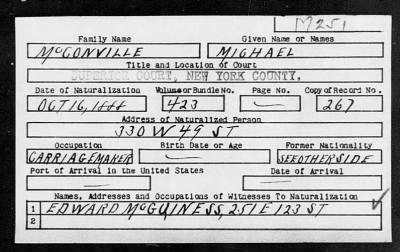 M251
Family Name Given Name or Names
McGONVILLE MICHAEL
Title and Location of Court
SUPERIOR COURT, NEW YORK COUNTY.
Date of Naturalization Volume or Bundle No. Page No. Copy of Record No.
OCT 16, 1888 423 — 267
Address of Naturalized Person
330 W 49 ST
Occupation Birth Date or Age Former Nationality
CARRIAGEMAKER — SEE OTHER SIDE
Port of Arrival in the United States Date of Arrival
— —
Names, Addresses and Occupations of Witnesses To Naturalization
1 EDWARD McGUINESS, 251 E 123 ST
2